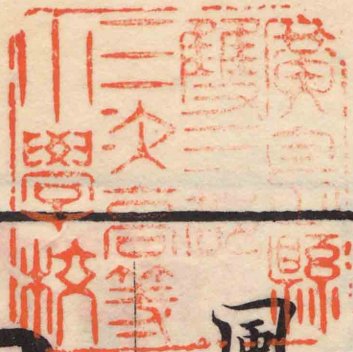 廣島縣
雙三郡
三次高等
小學校